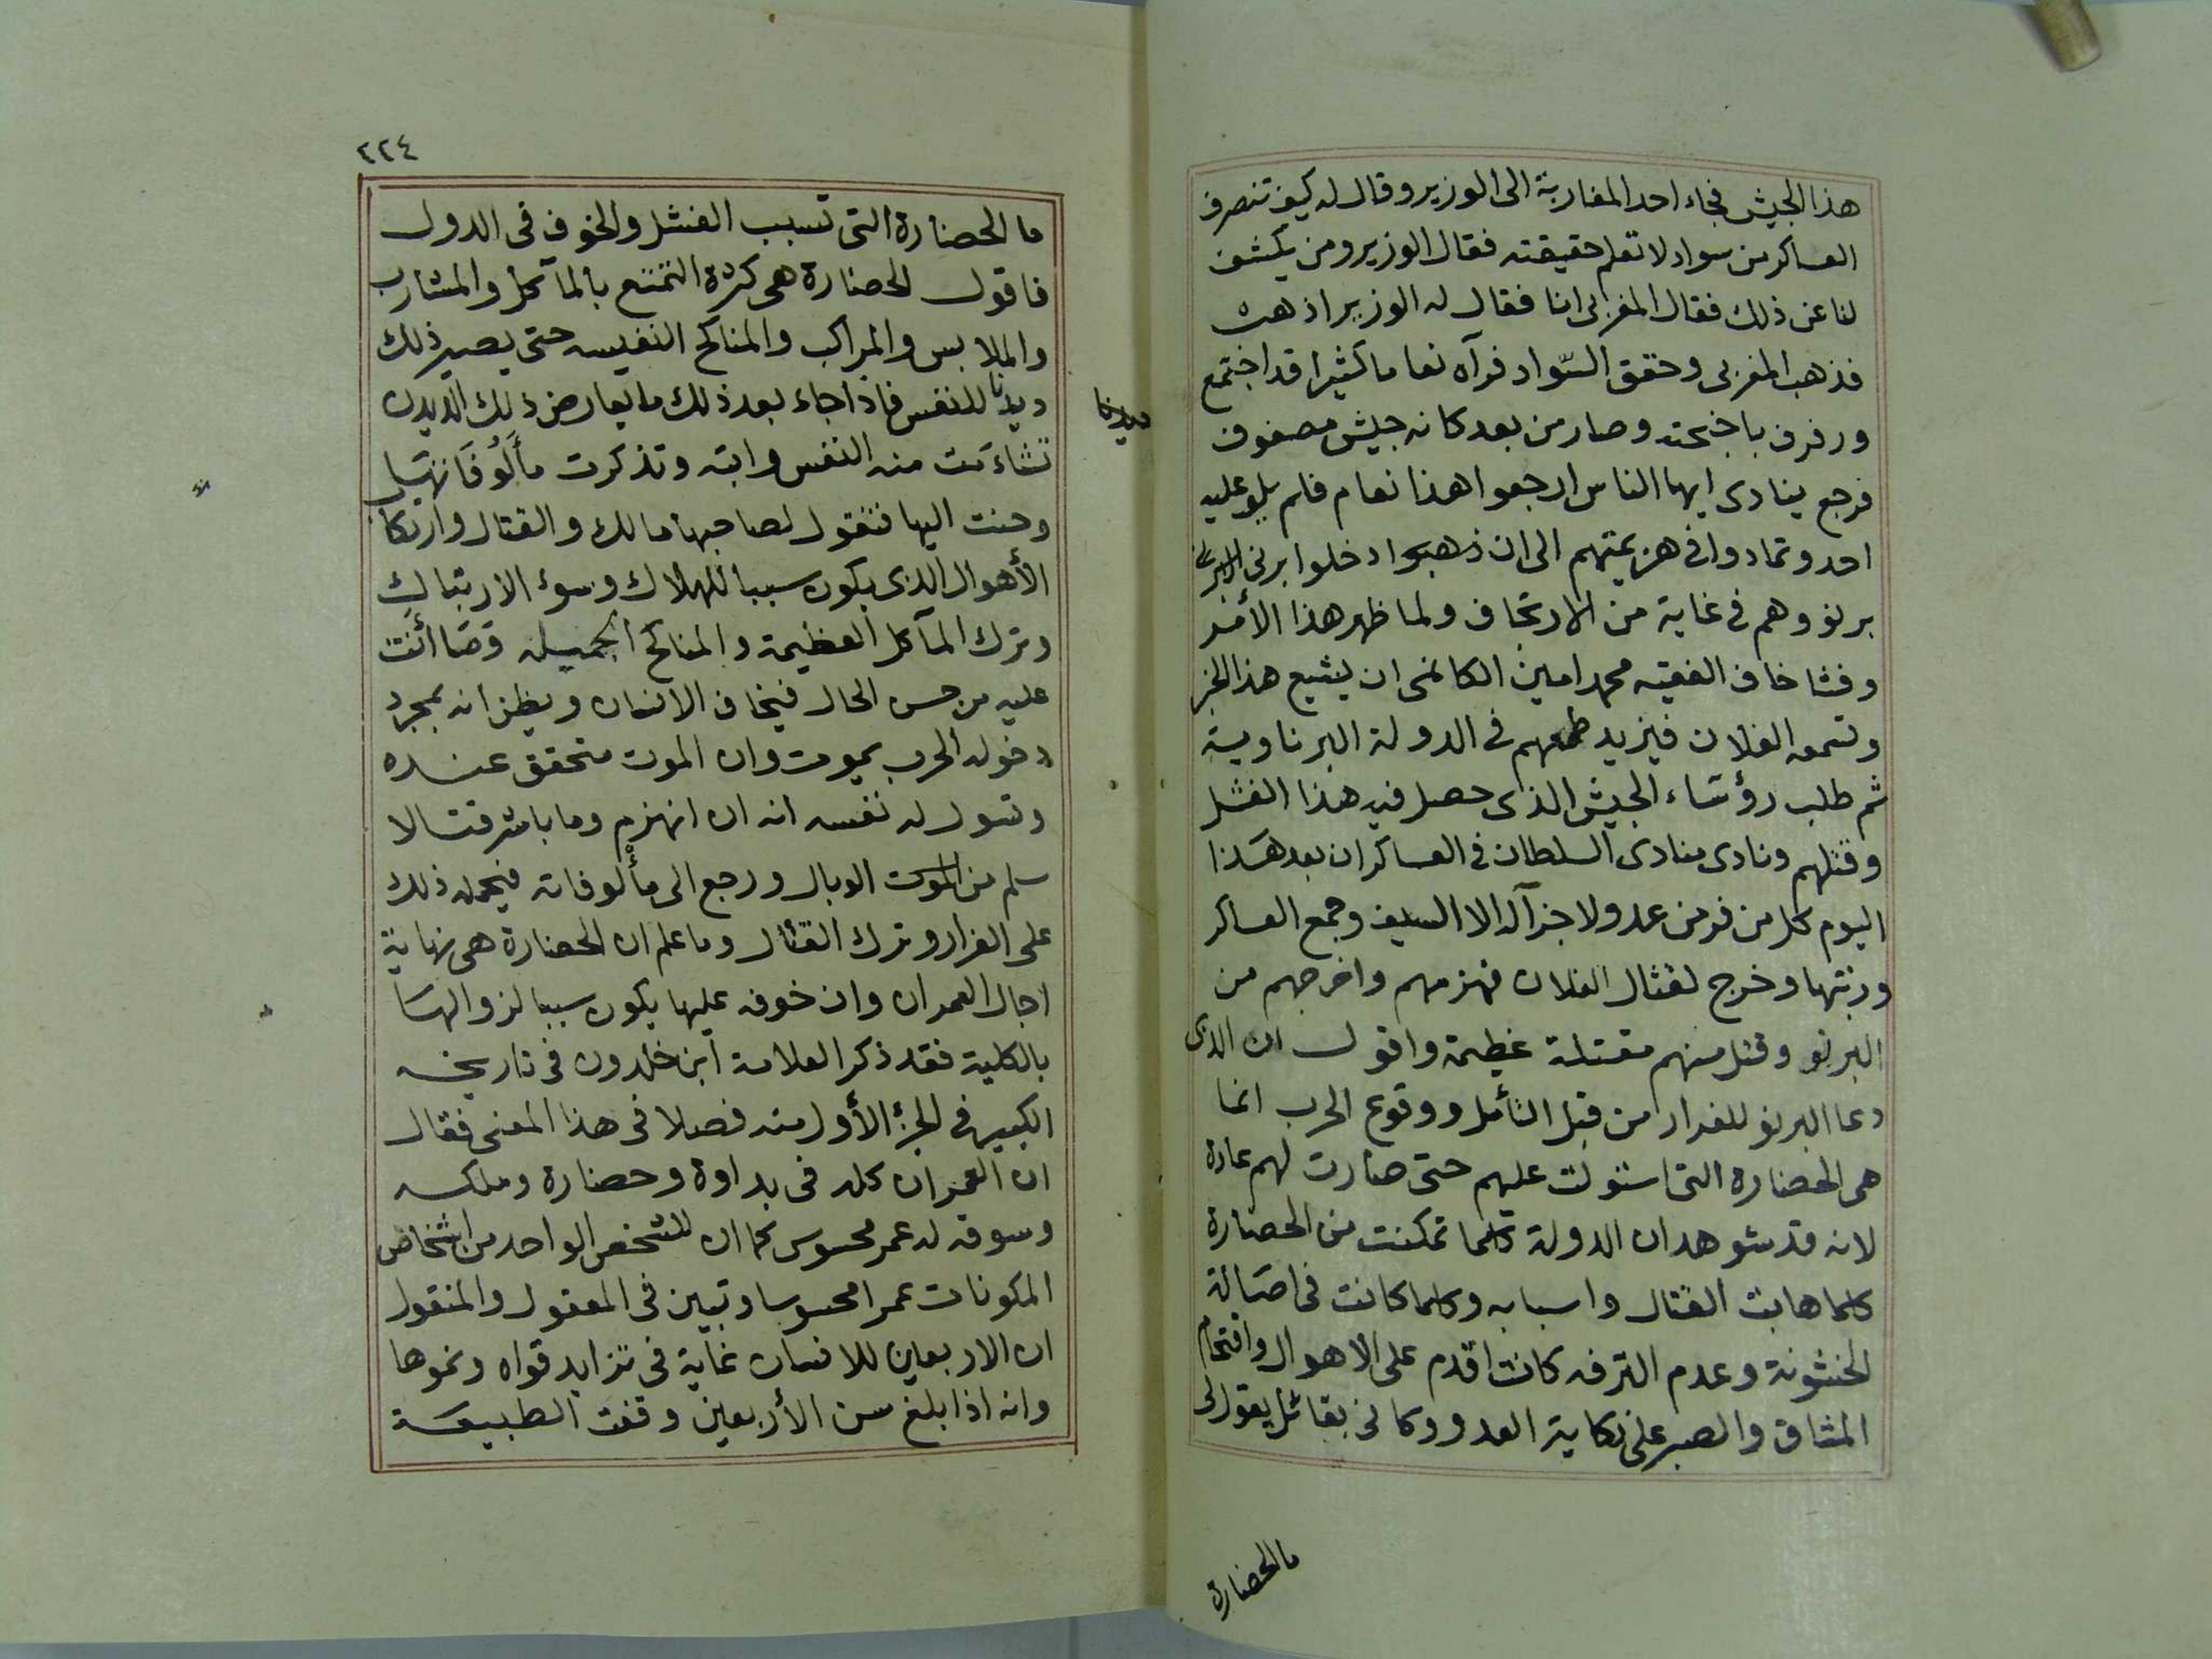 هذا الجيش فجاء احد المغاربة الى الوزير وقال له كيف تنصرف
العساكر من سواد لا تعلم حقيقته فقال الوزير ومن يكشف
لنا عن ذلك فقال المغربى انا فقال له الوزير اذهب
فذهب المغربى وحقق السّواد فرآه نعاما كثيرا قد اجتمع
ورفرف باجنحته وصار من بعد كانه جيش مصفوف
فرجع ينادى ايها الناس ارجعوا هذا نعام فلم يلو عليه
احد وتمادوا فى هزيمتهم الى ان ذهبوا دخلوا برنى
برنو وهم فى غاية من الارتجاف ولما ظهر هذا الأمر
وفشا خاف الفقيه محمد امين الكانمى ان يشيع هذا الخبر
وتسمعه الفلان فيزيد طمعهم فى الدولة البرناوية
ثم طلب رؤساء الجيش الذى حصل فيه هذا الفشل
وقتلهم ونادى منادى السلطان فى العساكر ان بعد هذا
اليوم كل من فر من عدو لا جزآ له الا السيف وجمع العساكر
ورتبها وخرج لقتال الفلان فهزمهم واخرجهم من
البرنو وقتل منهم مقتلة عظيمة واقول ان الذى
دعا البرنو للفرار من قبل التأمل ووقوع الحرب انما
هى الحضارة التى استولت عليهم حتى صارت لهم عادة
لانه قد شوهد ان الدولة كلما تمكنت من الحضارة
كلما هابت القتال واسبابه وكلما كانت فى اصالة
الخشونة وعدم الترفه كانت اقدم على الاهوال واقتحام
المشاق والصبر على نكاية العدو وكانى بقائل يقول لى
ما الحضارة
٢٢٤
ما الحضارة التى تسبب الفشل والخوف فى الدول
فاقول الحضارة هى كثرة التمتع بالمآكل والمشارب
والملابس والمراكب والمناكح النفيسه حتى يصير ذلك
ديدنا للنفس فاذا جاء بعد ذلك ما يعارض ذلك الديدن
ديدنا
تشاءمت منه النفس وابته وتذكرت مألوفاتها
وحنت اليها فتقول لصاحبها مالك والقتال وارتكاب
الأهوال الذى يكون سببا للهلاك وسوء الارتباك
وترك المآكل العظيمة والمناكح الجميله وما أنت
عليه من حسن الحال فيخاف الانسان ويظن انه بمجرد
دخوله الحرب يموت وان الموت متحقق عنده
وتسول له نفسه انه ان انهزم وما باشر قتالا
سلم من الموت الوبال ورجع الى مألوفاته فيحمله ذلك
على الفرار وترك القتال وما علم ان الحضارة هى نهاية
اجال العمران وان خوفه عليها يكون سببا لزوالها
بالكلية فقد ذكر العلامة ابن خلدون فى تاريخه
الكبير فى الجزء الأول منه فصلا فى هذا المعنى فقال
ان العمران كله فى بداوة وحضارة وملكه
وسوقه له عمر محسوس كما ان للشخص الواحد من اشخاص
المكونات عمرا محسوسا وتبين فى المعقول والمنقول
ان الاربعين للانسان غاية فى تزايد قواه ونموها
وانه اذا بلغ سن الأربعين وقفت الطبيعة